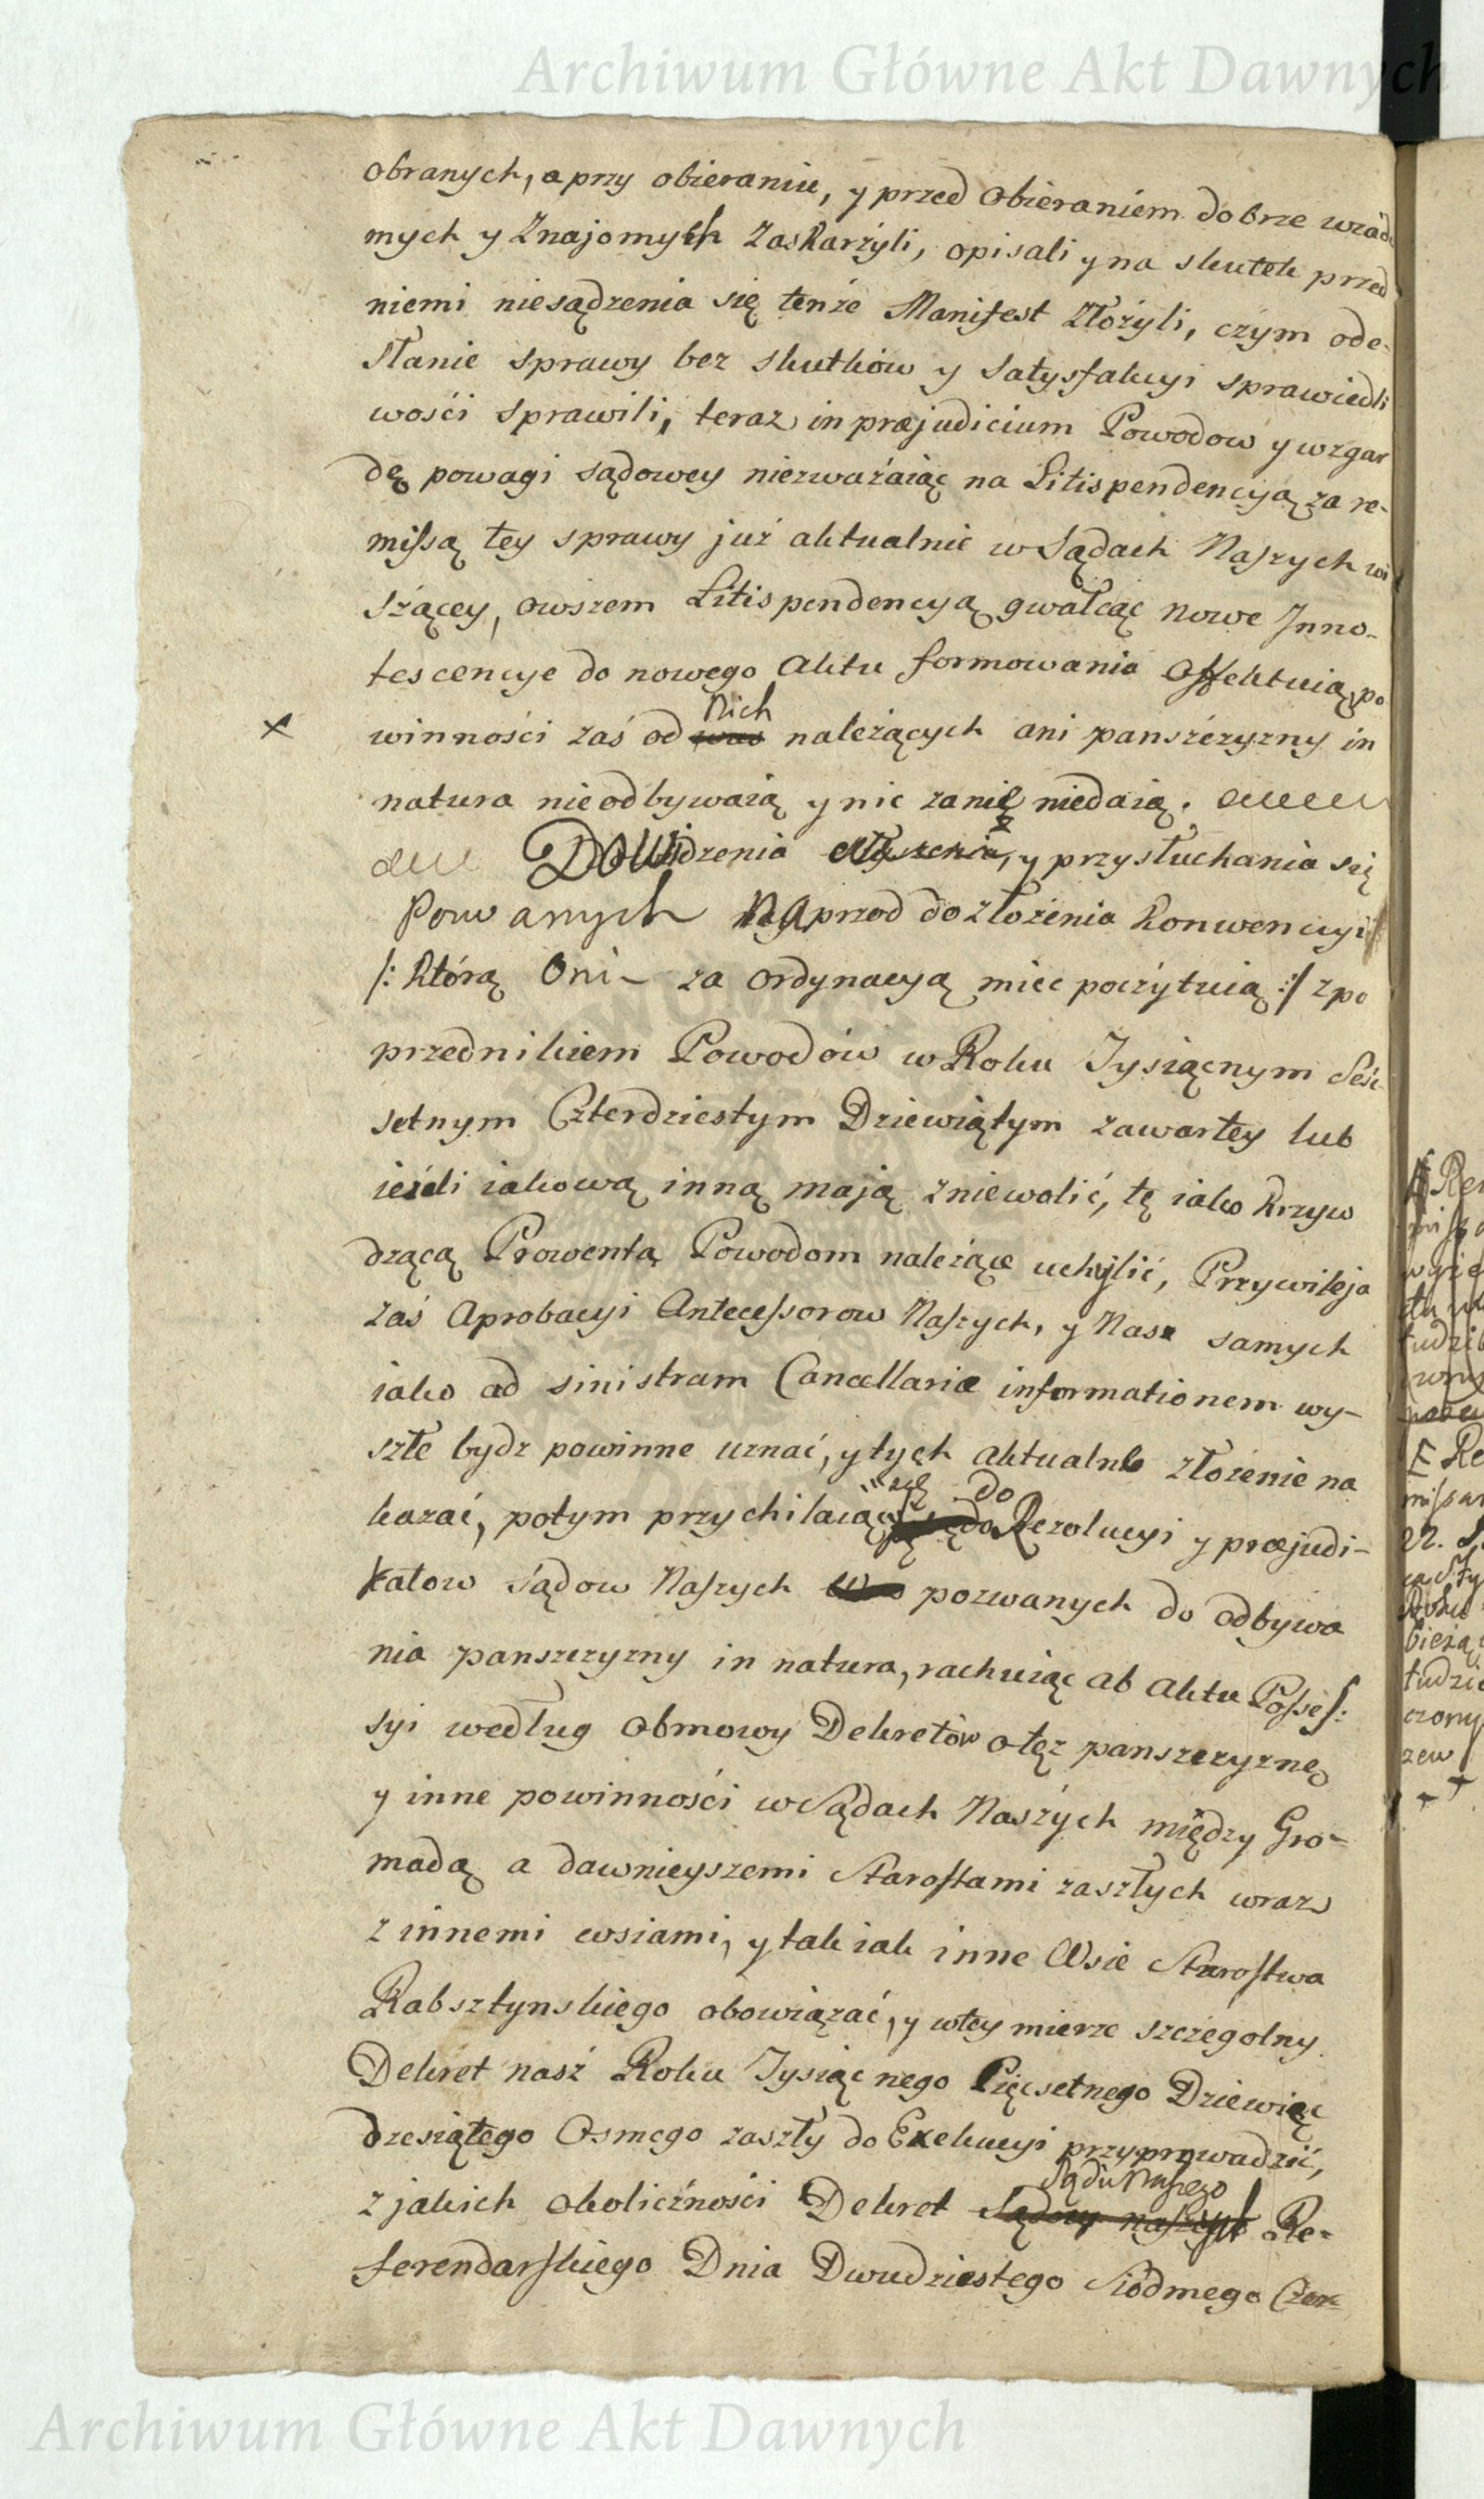 Archiwum Główne Akt Dawnych
obranych, a przy obieraniu, y przed obieraniem dobrze wiado
mych y Znajomych Zaskarżyli, opisali y na skutek przed
niemi niesądzenia się tenże Manifest złożyli, czym ode-
słanie sprawy bez skutków y satysfakcyi sprawiedli
wości sprawili, teraz in præjudicium Powodow y wzgar
dę powagi sądowey niezważaiąc na Litispendencyą za re-
missą tey sprawy już aktualnie w Sądach Naszych wi
szącey, owszem Litispendencyą gwałcąc nowe Inno-
tescencye do nowego aktu formowania affektuią, po
nich
x winności zaś od was należących ani pańszczyzny in
natura nieodbywaią y nic za nię niedaią.
Do Widzenia y przysłuchania się
Pozwanych Naprzod do złożenia Konwencyi
/: którą Oni za ordynacyą mieć poczytuią :/ z po
przednikiem Powodów w Roku Tysiącnym Seść
setnym Czterdziestym Dziewiątym zawartey lub
ieżeli iakową inną mają zniewolić, tę iako Krzyw
dzącą Prowenta Powodom należące uchylić, Przywileja
zaś Aprobacyi Antecessorow Naszych, y Nas samych
iako ad sinistram Cancellariæ informationem wy-
szłe bydz powinne uznać, y tych aktualne złożenie na
się do
kazać, potym przychilaiąc Rezolucyi y præjudi-
katow Sądow Naszych pozwanych do odbywa
nia panszczyzny in natura, rachuiąc ab aktu Posses:
syi według obmowy Dekretów o tęż panszczyznę
y inne powinności w Sądach Naszych między Gro-
madą a dawnieyszemi Starostami zaszłych wraz
z innemi wsiami, y tak iak inne Wsie Starostwa
Rabsztynskiego obowiązać, y wtey mierze szczegolny
Dekret nasz Roku Tysiącnego Pięćsetnego Dziewięć
dziesiątego Osmego zaszły do Exekucyi przyprowadzić,
Sądu Naszego
z jakich okoliczności Dekret Sądow naszych Re-
ferendarskiego Dnia Dwudziestego Siódmego Czer-
Archiwum Główne Akt Dawnych